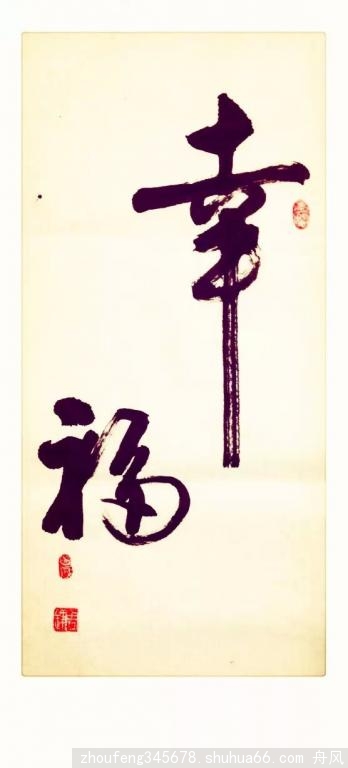 幸
福
zhoufeng345678.shuhua66.com 舟风